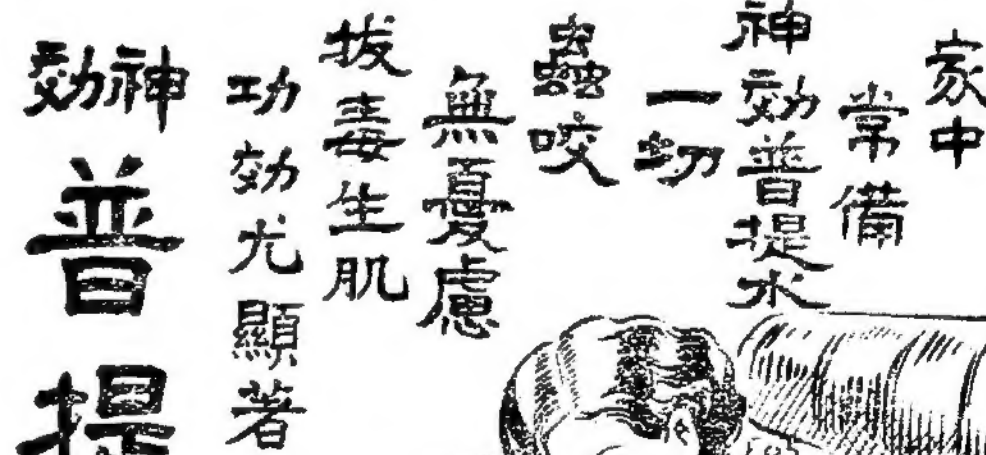 家中
常備
神効普提水
一切
蟲咬
無憂慮
拔毒生肌
功効尤顯著
神効
普提